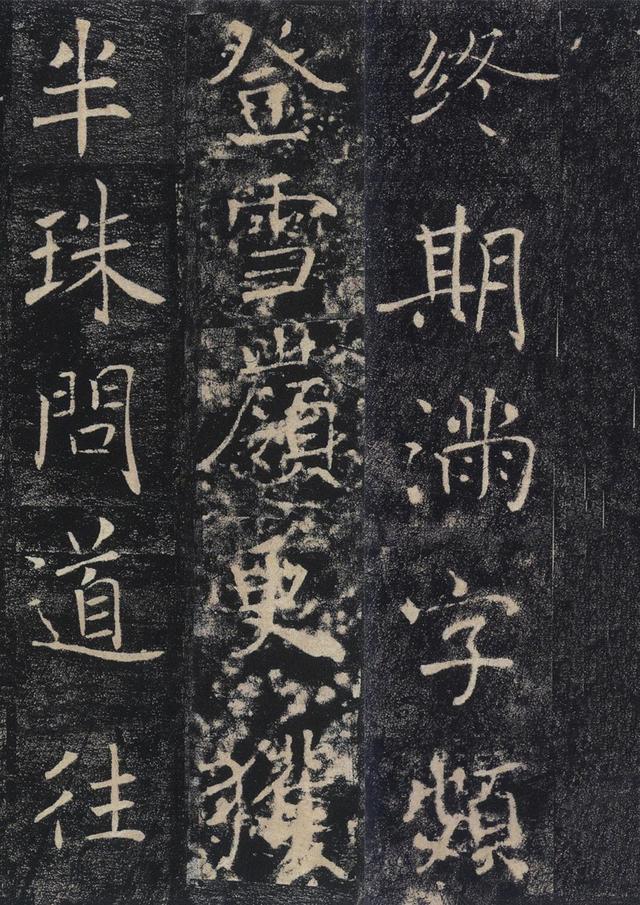 終期滿字頻
登雪嶺更獲
半珠問道往